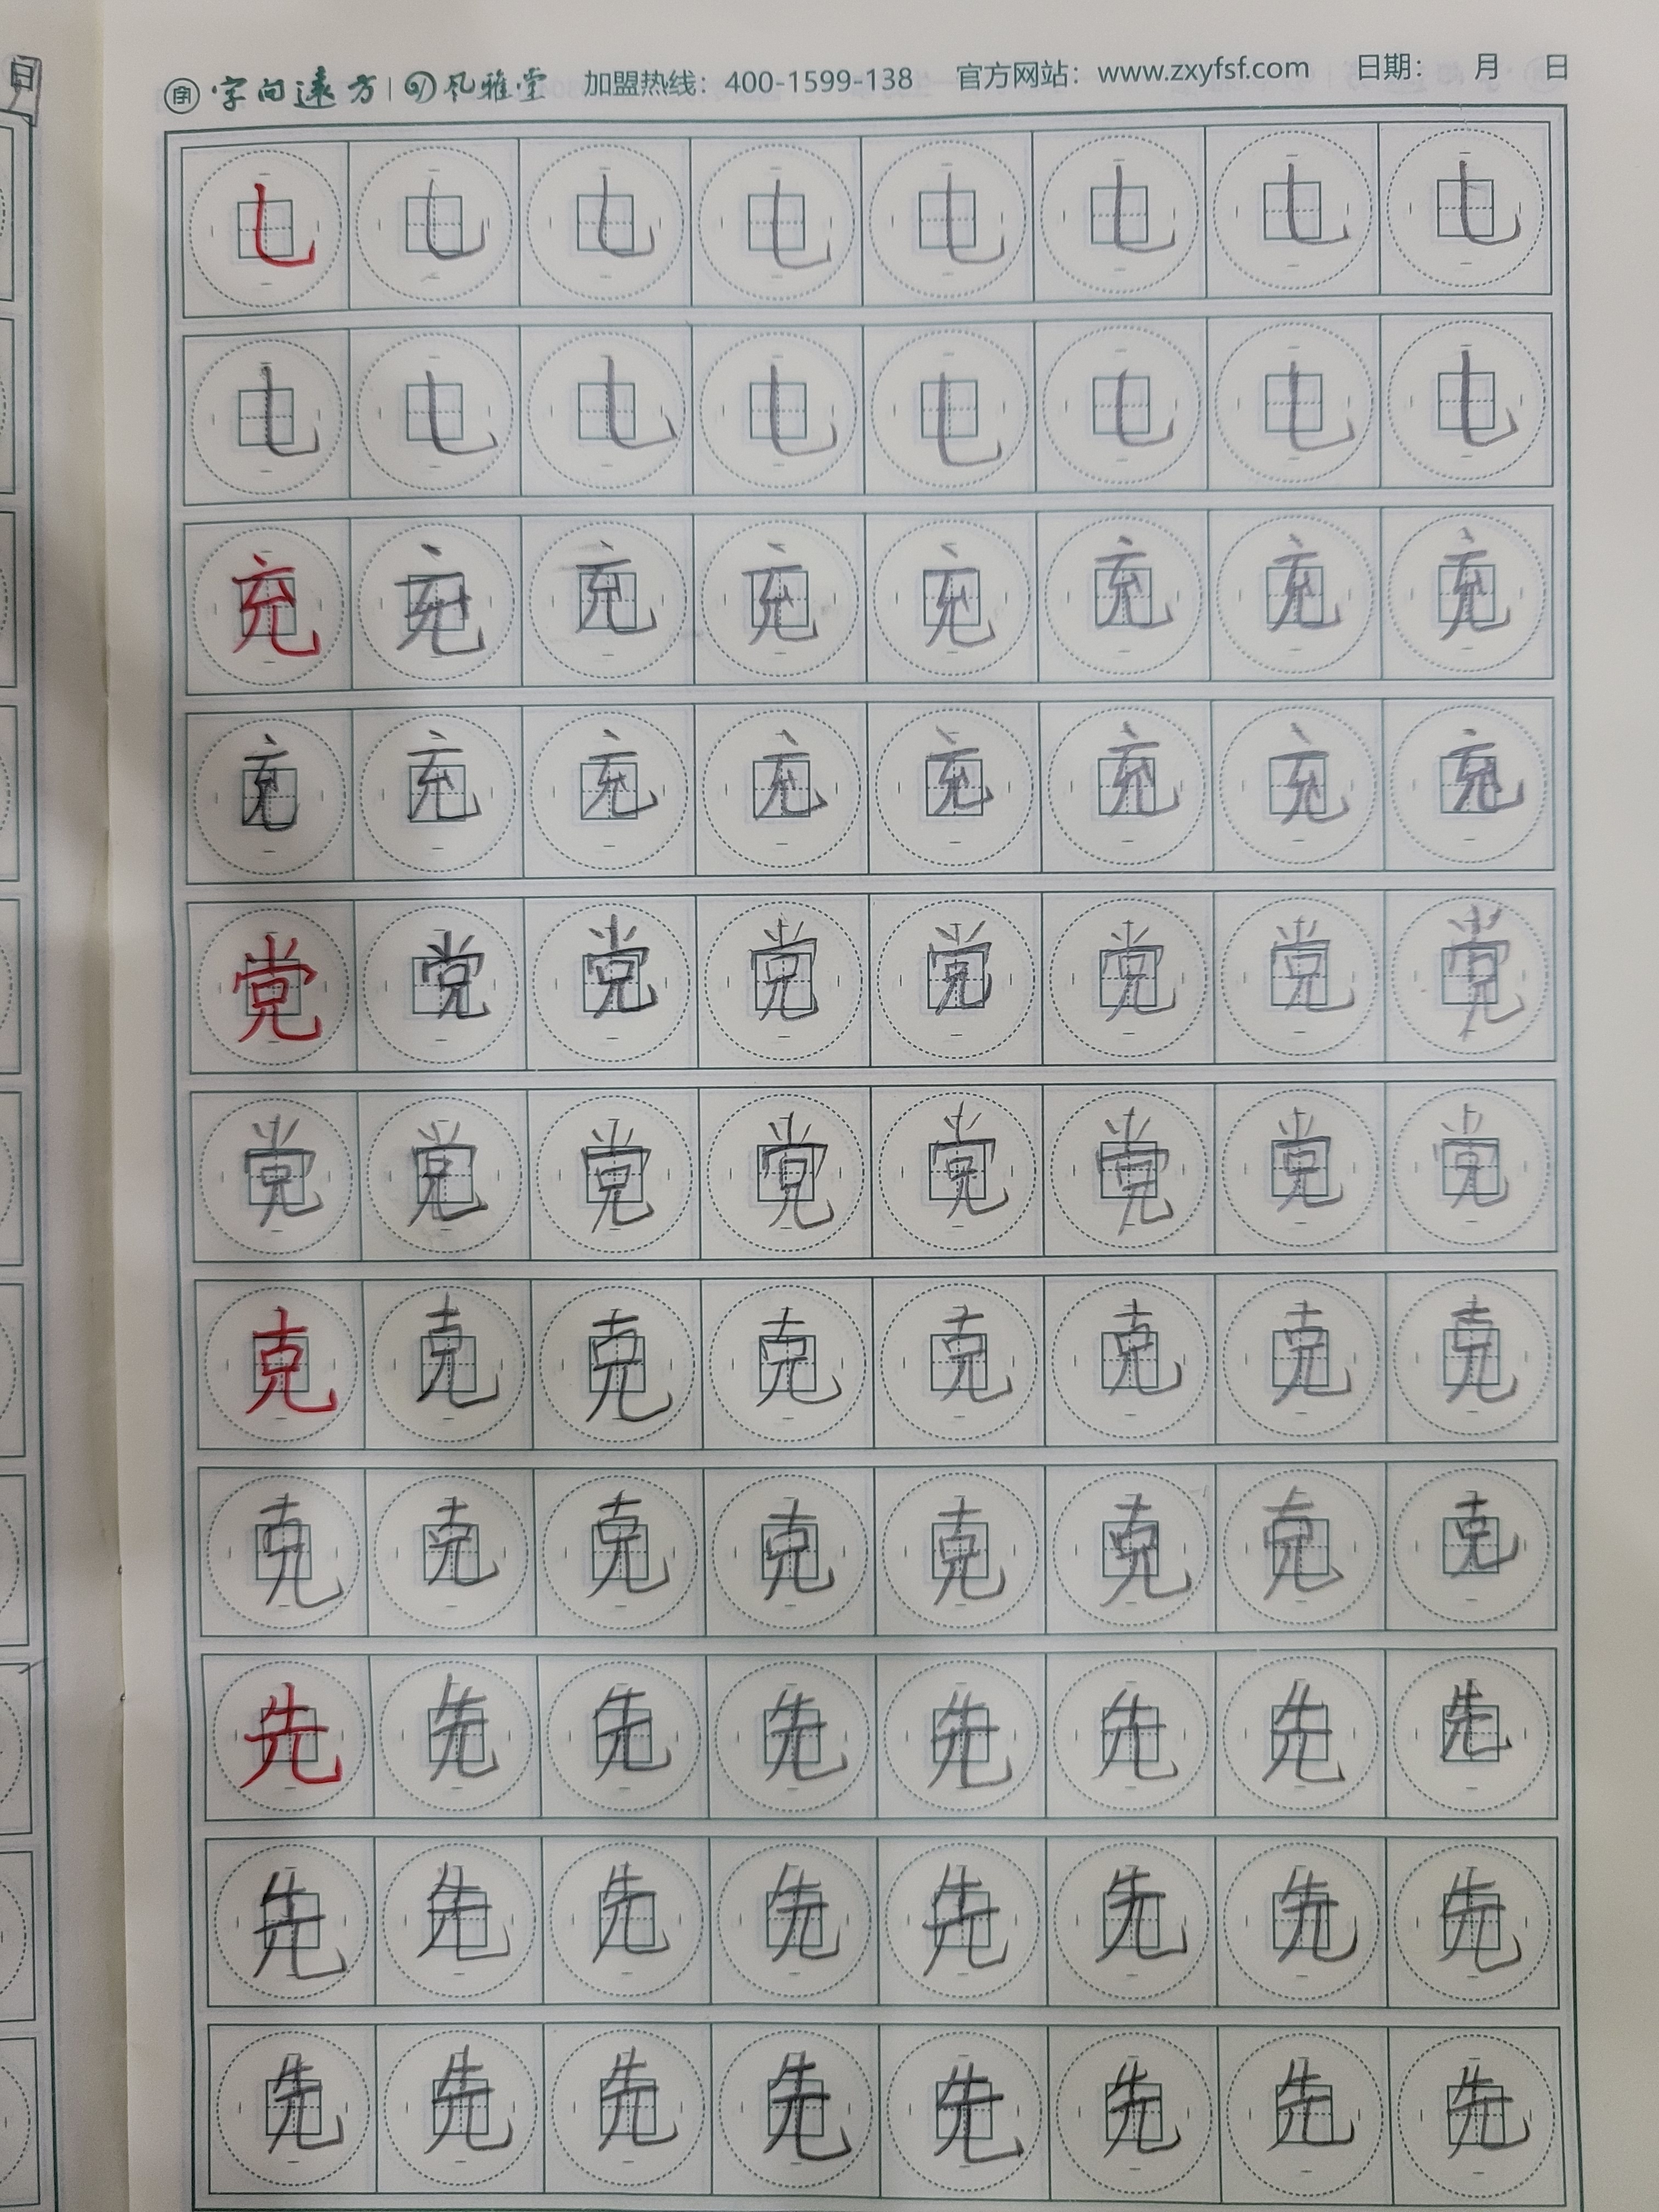 字 字向远方 | 风雅堂 加盟热线：400-1599-138 官方网站：www.zxyfsf.com 日期： 月 日
乚 乚 乚 乚 乚 乚 乚 乚
乚 乚 乚 乚 乚 乚 乚 乚
充 充 充 充 充 充 充 充
充 充 充 充 充 充 充 充
党 党 党 党 党 党 党 党
党 党 党 党 党 党 党 党
克 克 克 克 克 克 克 克
克 克 克 克 克 克 克 克
先 先 先 先 先 先 先 先
先 先 先 先 先 先 先 先
先 先 先 先 先 先 先 先